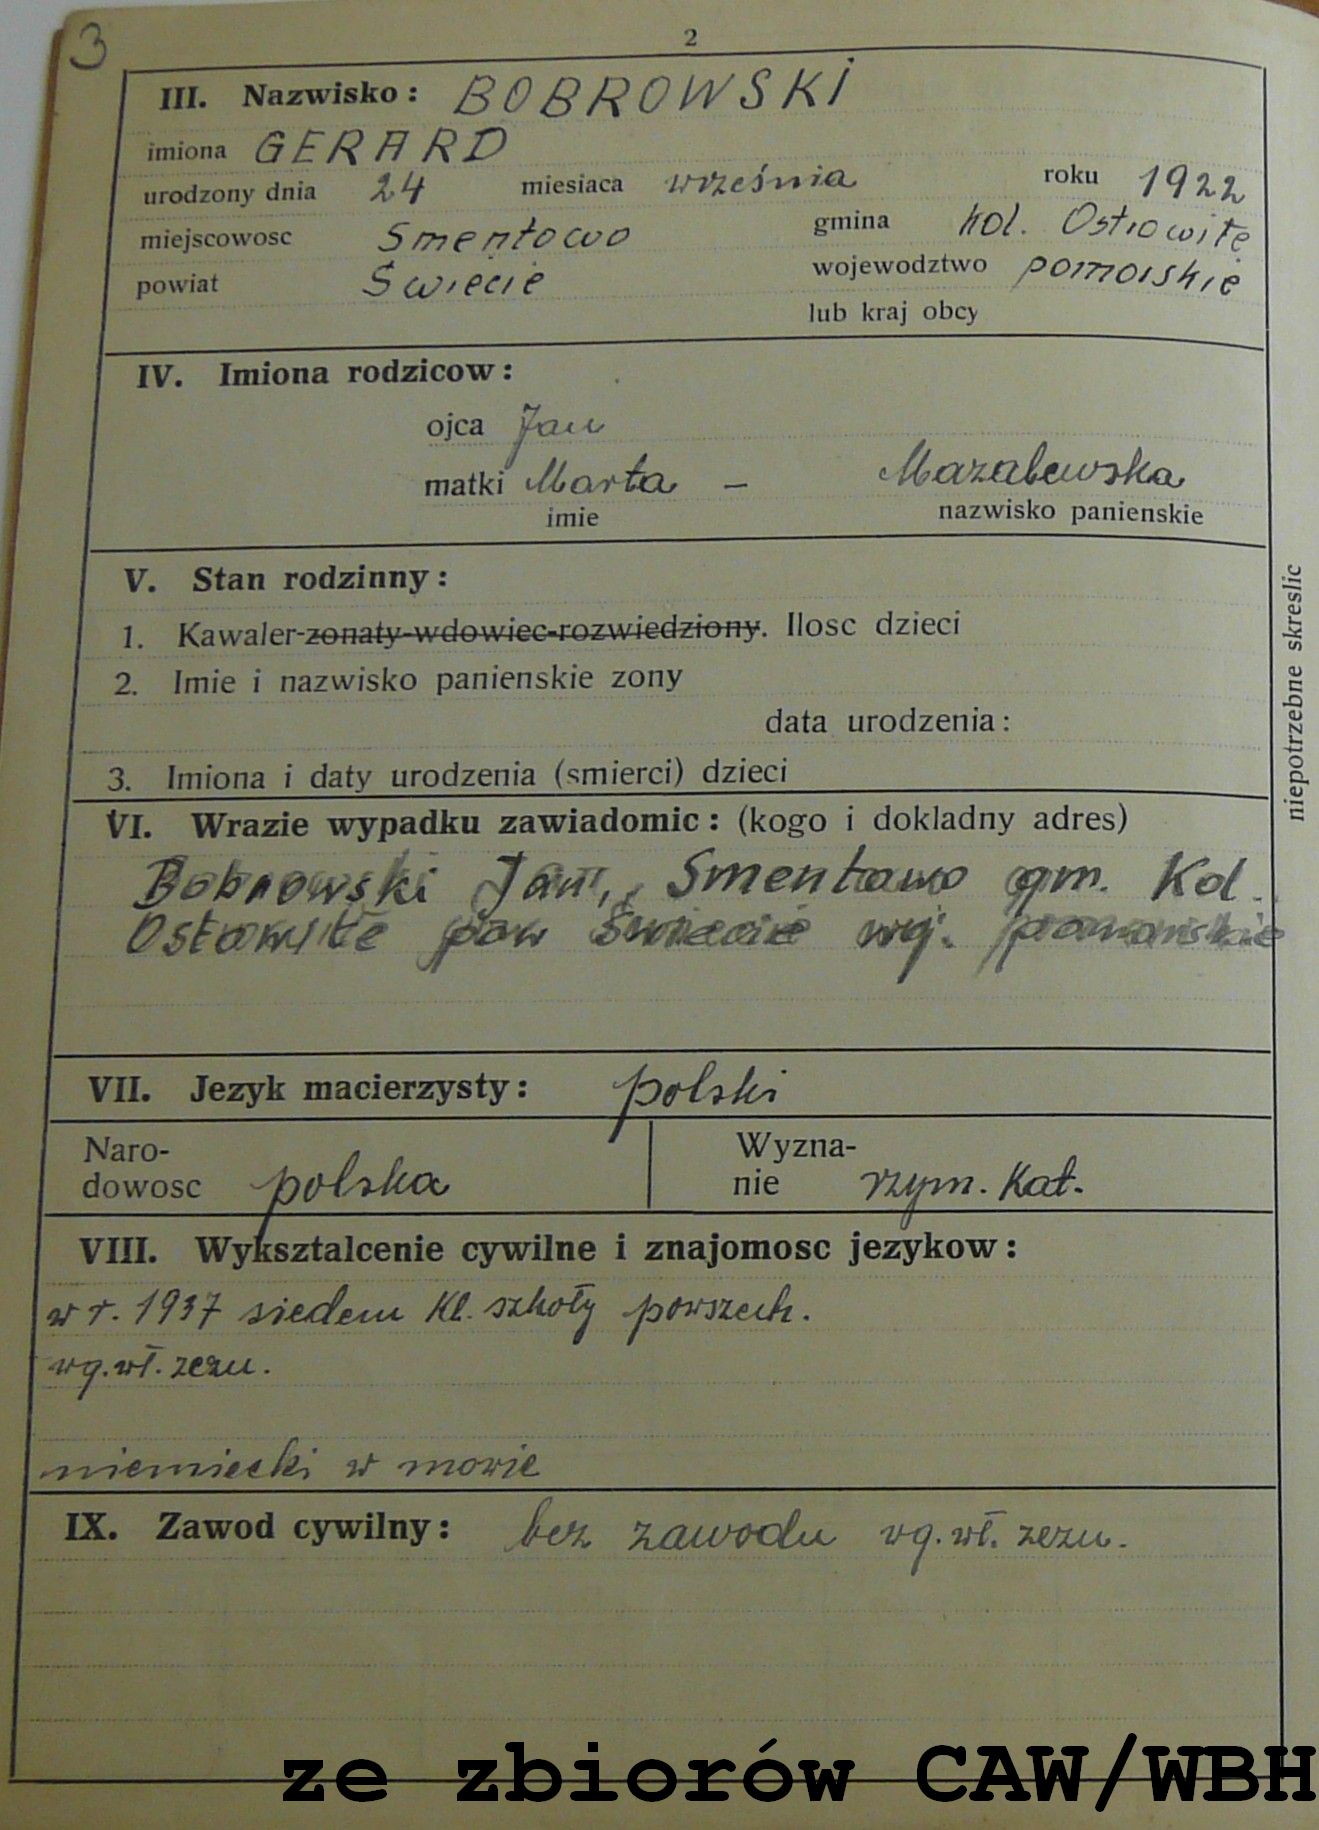 3
2
III. Nazwisko: BOBROWSKI
imiona GERARD
urodzony dnia 24 miesiaca września roku 1922
miejscowosc Smentowo gmina Kol. Ostrowite
powiat Świecie wojewodztwo pomorskie
lub kraj obcy
IV. Imiona rodzicow:
ojca Jan
matki Marta - Mazalewska
imie nazwisko panienskie
V. Stan rodzinny:
1. Kawaler-zonaty-wdowiec-rozwiedziony. Ilosc dzieci
2. Imie i nazwisko panienskie zony
data urodzenia:
3. Imiona i daty urodzenia (smierci) dzieci
niepotrzebne skreslic
VI. Wrazie wypadku zawiadomic: (kogo i dokladny adres)
Bobrowski Jan, Smentowo gm. Kol.
Ostowite pow Świecie woj.
VII. Jezyk macierzysty: polski
Naro-
dowosc polska
Wyzna-
nie rzym. Kat.
VIII. Wyksztalcenie cywilne i znajomosc jezykow:
w r. 1937 siedem kl. szkoły powszech.
wg. wł. zezn.
niemiecki w mowie
IX. Zawod cywilny: bez zawodu wg. wł. zezn.
ze zbiorów CAW/WBH